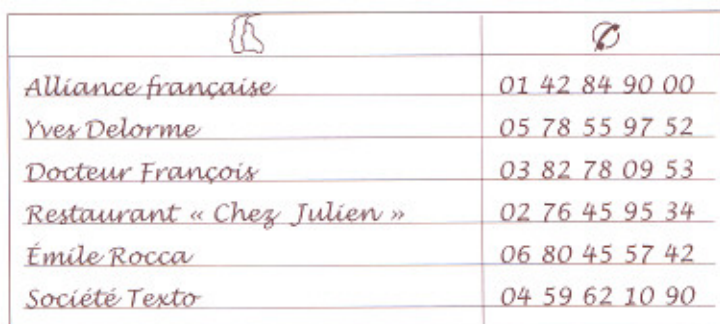 Alliance française 01 42 84 90 00
Yves Delorme 05 78 55 97 52
Docteur François 03 82 78 09 53
Restaurant « Chez Julien » 02 76 45 95 34
Émile Rocca 06 80 45 57 42
Société Texto 04 59 62 10 90